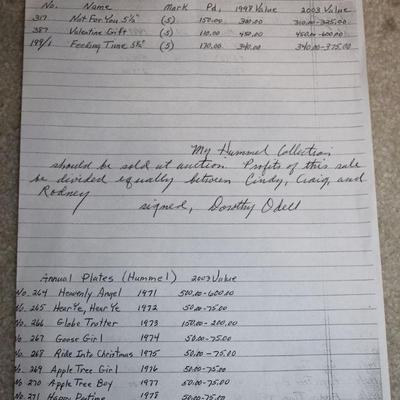 No. Name Mark Pd. 1998 Value 2003 Value
317 Not For You 5½" (5) 150.00 200.00 310.00-325.00
387 Valentine Gift (5) 110.00 450.00 450.00-600.00
199/1 Feeding Time 5½" (5) 170.00 340.00 340.00-375.00
My Hummel Collection
should be sold at auction. Profits of this sale
be divided equally between Cindy, Craig, and
Rodney
signed, Dorothy Odell
Annual Plates (Hummel) 2003 Value
No. 264 Heavenly Angel 1971 500.00-600.00
No. 265 Hear Ye, Hear Ye 1972 50.00-75.00
No. 266 Globe Trotter 1973 100.00-200.00
No. 267 Goose Girl 1974 50.00-75.00
No. 268 Ride Into Christmas 1975 50.00-75.00
No. 269 Apple Tree Girl 1976 50.00-75.00
No. 270 Apple Tree Boy 1977 50.00-75.00
No. 271 Happy Pastime 1978 50.00-75.00